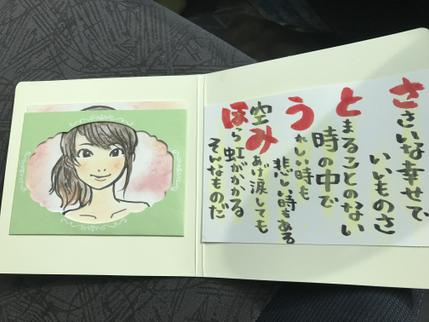 ささいな幸せで
いいものさ
とまることのない
時の中で
うれしい時も
悲しい時もある
空みあげ涙しても
ほら虹がかかる
そんなものだ